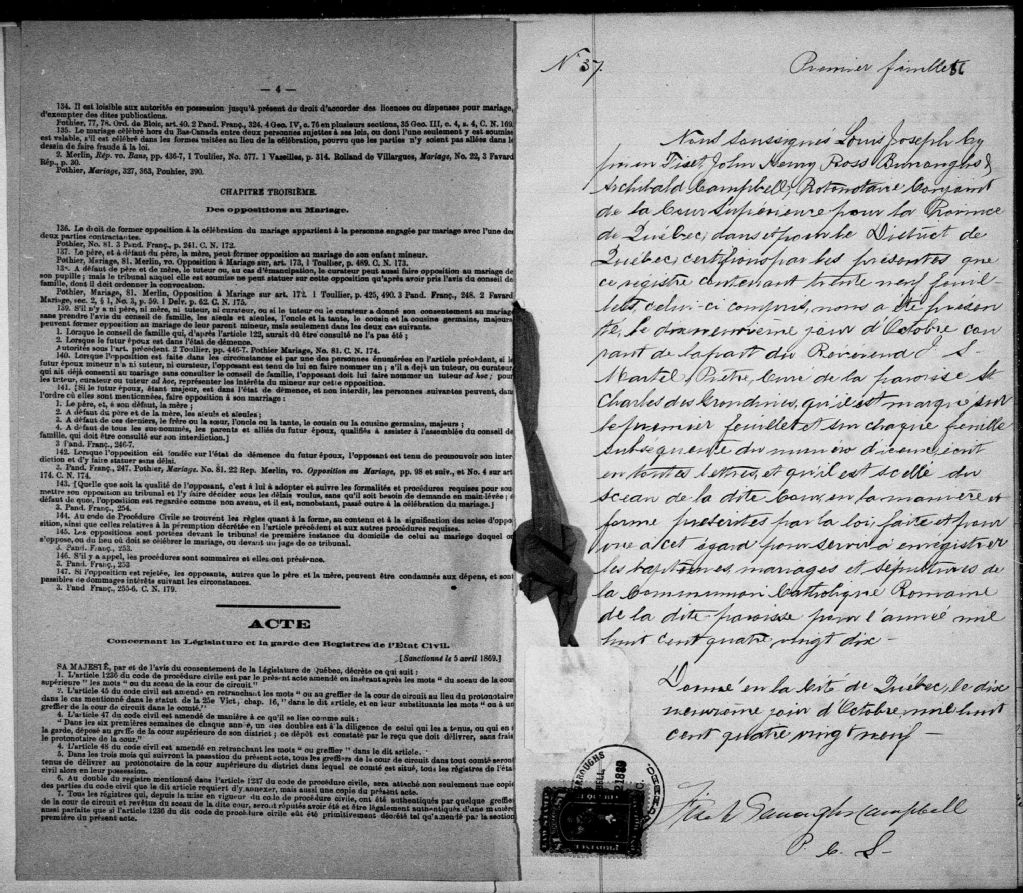 — 4 —
134. Il est loisible aux autorités en possession jusqu'à présent du droit d'accorder des licences ou dispenses pour mariage,
d'exempter des dites publications.
Pothier, 77, 78. Ord. de Blois, art. 40. 2 Pand. Franç., 324. 4 Geo. IV, c. 76 en plusieurs sections, 35 Geo. III, c. 4, s. 4, C. N. 169.
135. Le mariage célébré hors du Bas-Canada entre deux personnes sujettes à ses lois, ou dont l'une seulement y est soumise
est valable, s'il est célébré dans les formes usitées au lieu de la célébration, pourvu que les parties n'y soient pas allées dans le
dessein de faire fraude à la loi.
2. Merlin, Rép. vo. Bans, pp. 436-7, 1 Toullier, No. 577. 1 Vazeilles, p. 314. Rolland de Villargues, Mariage, No. 22, 3 Favard
Rép., p. 30.
Pothier, Mariage, 327, 363, Pouhier, 390.
CHAPITRE TROISIÈME.
Des oppositions au Mariage.
136. Le droit de former opposition à la célébration du mariage appartient à la personne engagée par mariage avec l'une des
deux parties contractantes.
Pothier, No. 81. 3 Pand. Franç., p. 241. C. N. 172.
137. Le père, et à défaut du père, la mère, peut former opposition au mariage de son enfant mineur.
Pothier, Mariage, 81. Merlin, vo. Opposition à Mariage sur art. 173, 1 Toullier, p. 489. C. N. 173.
138. A défaut de père et de mère, le tuteur ou, au cas d'émancipation, le curateur peut aussi faire opposition au mariage de
son pupille; mais le tribunal auquel elle est soumise ne peut statuer sur cette opposition qu'après avoir pris l'avis du conseil de
famille, dont il doit ordonner la convocation.
Pothier, Mariage, 81. Merlin, Opposition à Mariage sur art. 172. 1 Toullier, p. 425, 490. 3 Pand. Franç., 248. 2 Favard
Mariage, sec. 2, § 1, No. 3, p. 59. 1 Delv. p. 62. C. N. 175.
139. S'il n'y a ni père, ni mère, ni tuteur, ni curateur, ou si le tuteur ou le curateur a donné son consentement au mariage
sans prendre l'avis du conseil de famille, les aïeuls et aïeules, l'oncle et la tante, le cousin et la cousine germains, majeurs
peuvent former opposition au mariage de leur parent mineur, mais seulement dans les deux cas suivants.
1. Lorsque le conseil de famille qui, d'après l'article 122, aurait dû être consulté ne l'a pas été;
2. Lorsque le futur époux est dans l'état de démence.
Autorités sous l'art. précédent. 2 Toullier, pp. 446-7. Pothier Mariage, No. 81. C. N. 174.
140. Lorsque l'opposition est faite dans les circonstances et par une des personnes énumérées en l'article précédent, si le
futur époux mineur n'a ni tuteur, ni curateur, l'opposant est tenu de lui en faire nommer un; s'il a déjà un tuteur, ou curateur
qui ait déjà consenti au mariage sans consulter le conseil de famille, l'opposant doit lui faire nommer un tuteur ad hoc; pour
les tuteur, curateur ou tuteur ad hoc, représenter les intérêts du mineur sur cette opposition.
141. [Si le futur époux, étant majeur, est dans l'état de démence, et non interdit, les personnes suivantes peuvent, dans
l'ordre où elles sont mentionnées, faire opposition à son mariage:
1. Le père, et, à son défaut, la mère;
2. A défaut du père et de la mère, les aïeuls et aïeules;
3. A défaut de ces derniers, le frère ou la sœur, l'oncle ou la tante, le cousin ou la cousine germains, majeurs;
4. A défaut de tous les sus-nommés, les parents et alliés du futur époux, qualifiés à assister à l'assemblée du conseil de
famille, qui doit être consulté sur son interdiction.]
3 Pand. Franç., 246-7.
142. Lorsque l'opposition est fondée sur l'état de démence du futur époux, l'opposant est tenu de promouvoir son inter
diction et d'y faire statuer sans délai.
3. Pand. Franç., 247. Pothier, Mariage. No. 81. 22 Rep. Merlin, vo. Opposition au Mariage, pp. 98 et suiv., et No. 4 sur art
174. C. N. 174.
143. [Quelque que soit la qualité de l'opposant, c'est à lui à adopter et suivre les formalités et procédures requises pour son
mettre son opposition au tribunal et l'y faire décider sous les délais voulus, sans qu'il soit besoin de demande en main-levée; à
défaut de quoi, l'opposition est regardée comme non avenue, et il est, nonobstant, passé outre à la célébration du mariage.]
3. Pand. Franç., 254.
144. Au code de Procédure Civile se trouvent les règles quant à la forme, au contenu et à la signification des actes d'oppo
sition, ainsi que celles relatives à la péremption décrétée en l'article précédent et aux autres procédures requises.
145. Les oppositions sont portées devant le tribunal de première instance du domicile de celui au mariage duquel on
s'oppose, ou du lieu où doit se célébrer le mariage, ou devant un juge de ce tribunal.
3. Pand. Franç., 253.
146. S'il y a appel, les procédures sont sommaires et elles ont préséance.
3. Pand. Franç., 253
147. Si l'opposition est rejetée, les opposants, autres que le père et la mère, peuvent être condamnés aux dépens, et sont
passibles de dommages intérêts suivant les circonstances.
3. Pand Franç., 255-6. C. N. 179.
ACTE
Concernant la Législature et la garde des Registres de l'Etat Civil.
[Sanctionné le 5 avril 1869.]
SA MAJESTÉ, par et de l'avis du consentement de la Législature de Québec, décrète ce qui suit:
1. L'article 1236 du code de procédure civile est par le présent acte amendé en insérant après les mots "du sceau de la cour
supérieure" les mots "ou du sceau de la cour de circuit."
2. L'article 45 du code civil est amendé en retranchant les mots "ou au greffier de la cour de circuit au lieu du protonotaire
dans le cas mentionné dans le statut de la 25e Vict, chap. 16," dans le dit article, et en leur substituants les mots "ou à un
greffier de la cour de circuit dans le comté."
4. L'article 47 du code civil est amendé de manière à ce qu'il se lise comme suit:
"Dans les six premières semaines de chaque année, un des doubles est à la diligence de celui qui les a tenus, ou qui en a
la garde, déposé au greffe de la cour supérieure de son district; ce dépôt est constaté par le reçu que doit délivrer, sans frais
le protonotaire de la cour."
4. L'article 48 du code civil est amendé en retranchant les mots "ou greffier" dans le dit article.
5. Dans les trois mois qui suivront la passation du présent acte, tous les greffiers de la cour de circuit dans tout comté seront
tenus de délivrer au protonotaire de la cour supérieure du district dans lequel ce comté est situé, tous les régistres de l'état
civil alors en leur possession.
6. Au double du registre mentionné dans l'article 1237 du code de procédure civile, sera attaché non seulement une copie
des parties du code civil que le dit article requiert d'y annexer, mais aussi une copie du présent acte.
7. Tous les registres qui, depuis la mise en vigueur du code de procédure civile, ont été authentiqués par quelque greffier
de la cour de circuit et revêtus du sceau de la dite cour, seront réputés avoir été et être légalement authentiqués d'une manière
aussi parfaite que si l'article 1236 du dit code de procédure civile eût été primitivement décrété tel qu'amendé par la section
première du présent acte.
N° 37.
Premier feuillet
Nous soussignés Louis Joseph Cy
prien Fiset, John Henry Ross Burroughs &
Archibald Campbell, Protonotaire Conjoint
de la Cour Supérieure pour la Province
de Québec, dans et pour le District de
Québec, certifions par les présentes que
ce registre contenant trente neuf feuil-
lets, celui-ci compris, nous a été présen
té, le dix neuvième jour d'Octobre cou
rant de la part du Révérend J. S.
Martel Prêtre, Curé de la paroisse St
Charles des Grondines, qu'il est marqué sur
le premier feuillet et sur chaque feuille
subséquente du numéro d'icelui écrit
en toutes lettres, et qu'il est scellé du
sceau de la dite Cour, en la manière et
forme prescrites par la loi, faite et pour
vue à cet égard pour servir à enregistrer
les baptêmes, mariages et sépultures de
la Communion Catholique Romaine
de la dite paroisse pour l'année mil
huit cent quatre vingt dix —
Donné en la Cité de Québec, le dix
neuvième jour d'Octobre, mil huit
cent quatre vingt neuf —
Fiset Burroughs Campbell
P. C. S.